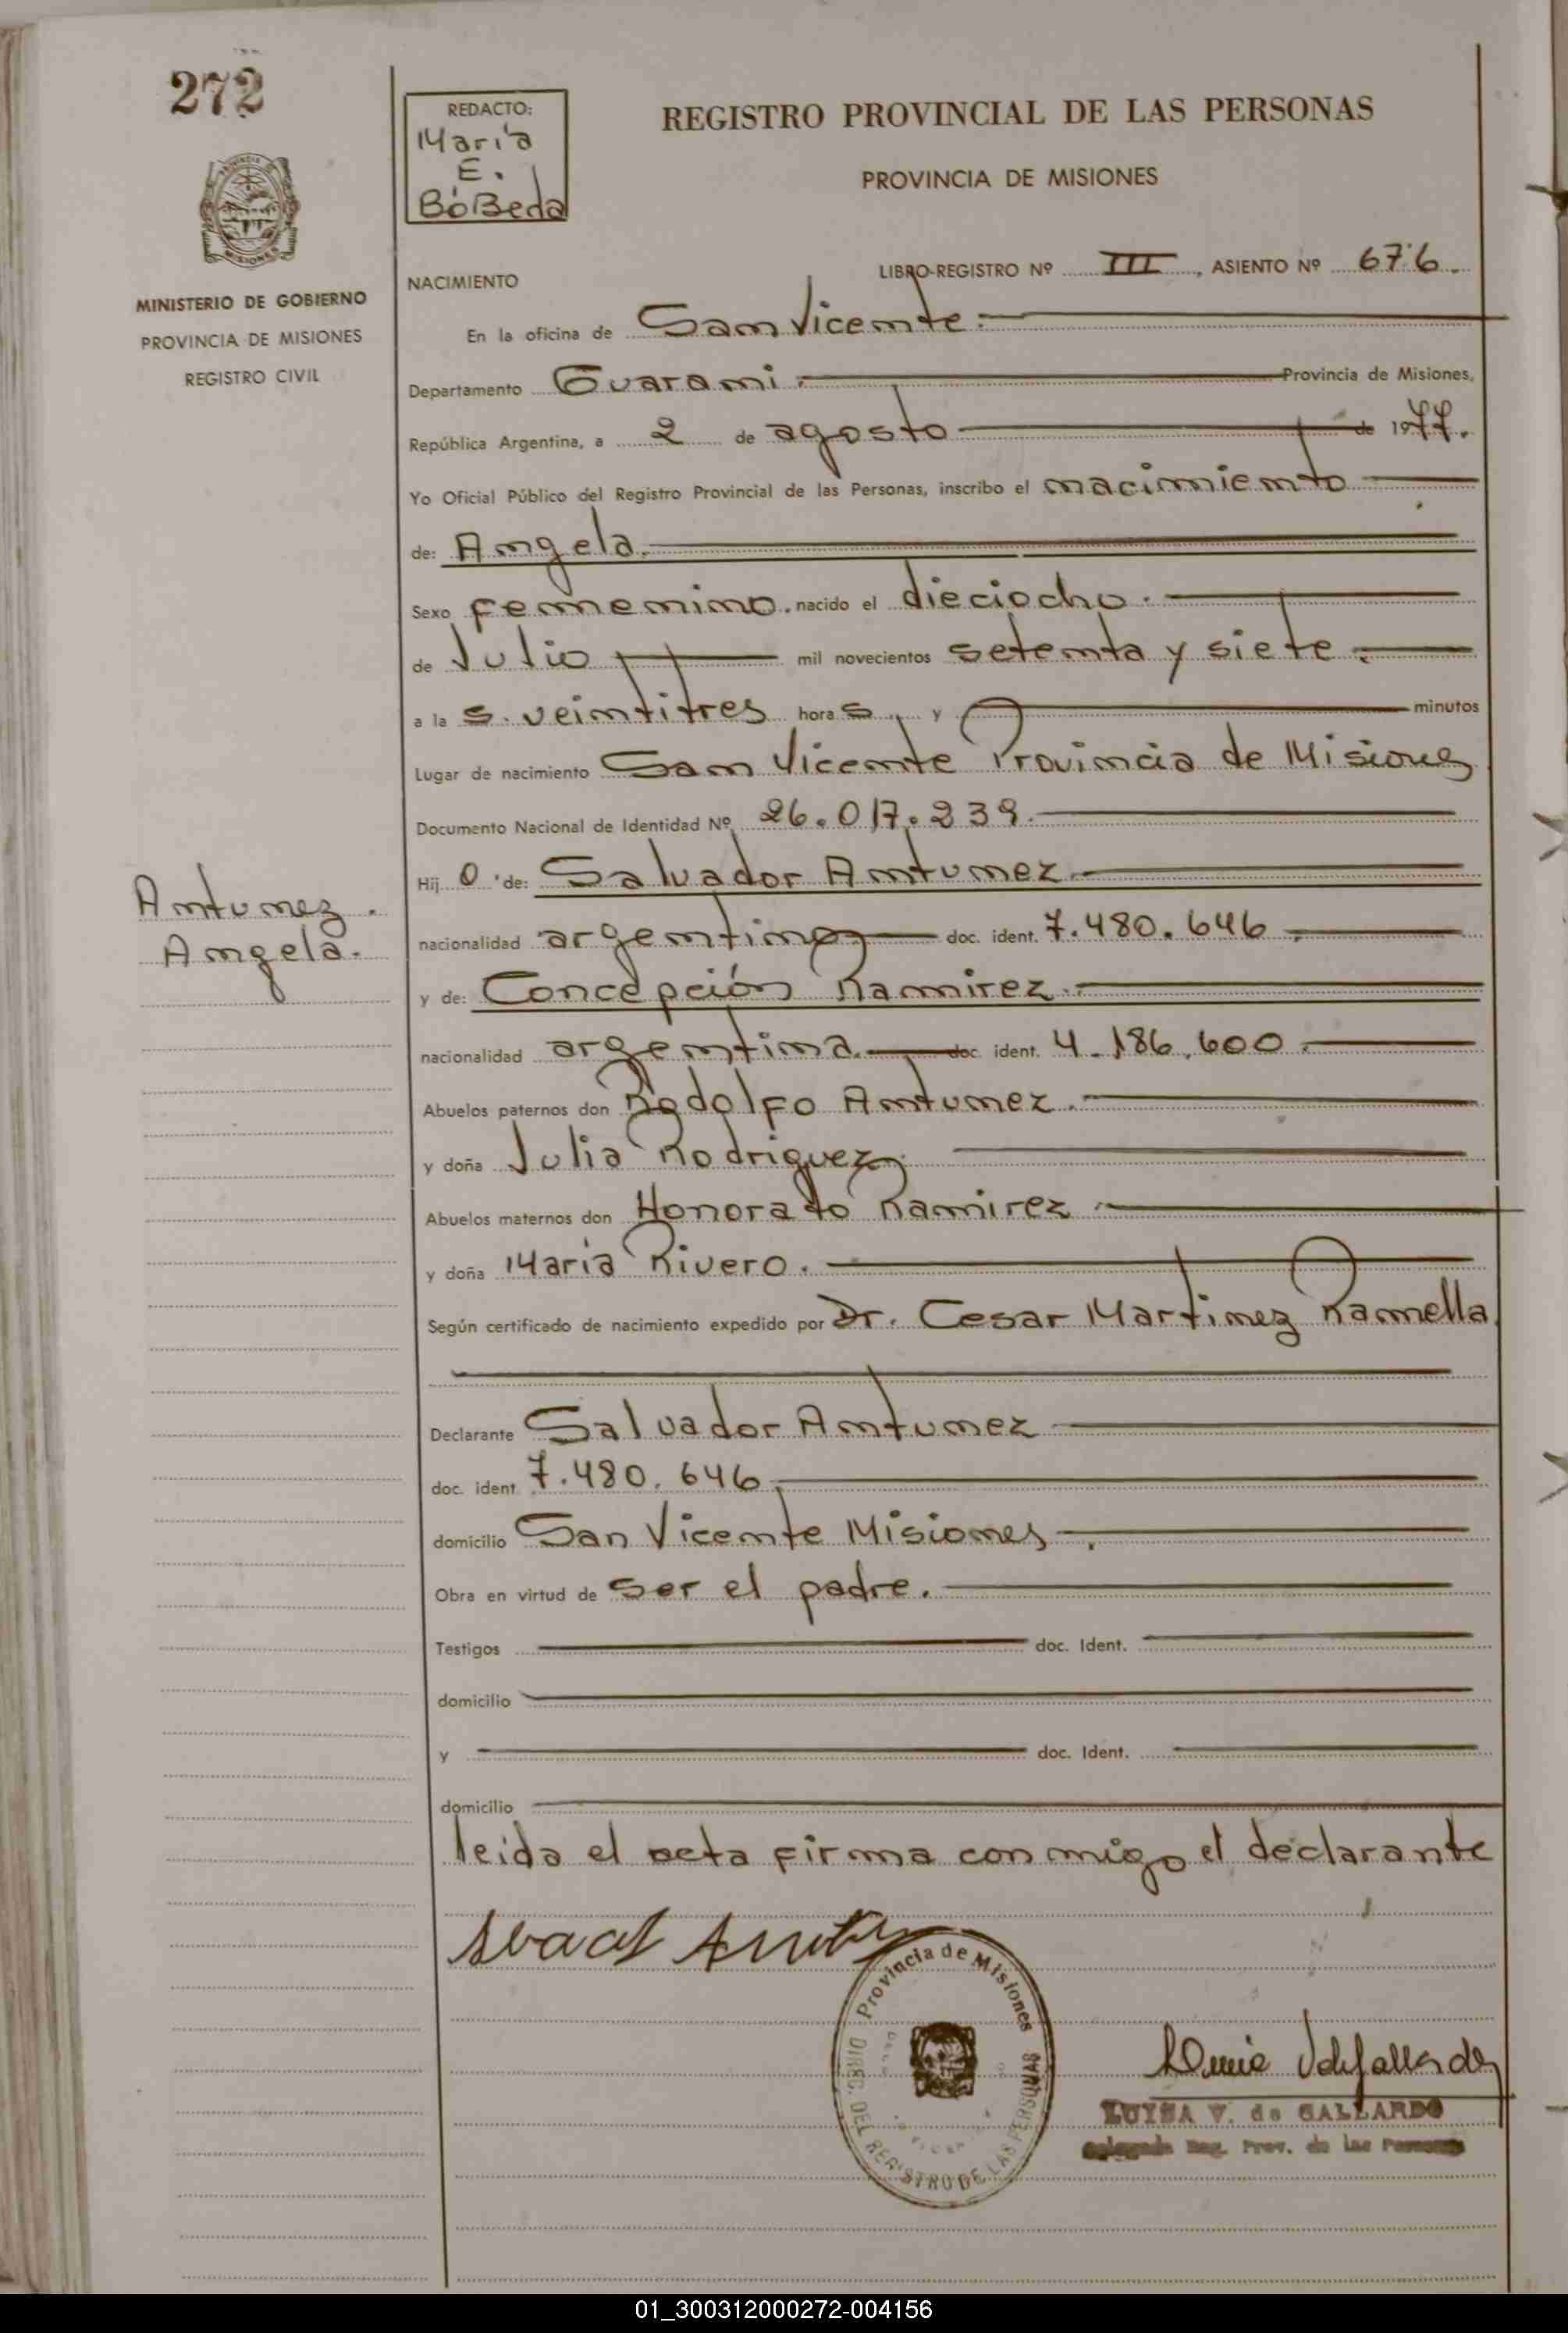 272
REDACTO:
María
E.
BóBeda
REGISTRO PROVINCIAL DE LAS PERSONAS
PROVINCIA DE MISIONES
MISIONES
MINISTERIO DE GOBIERNO
PROVINCIA DE MISIONES
REGISTRO CIVIL
NACIMIENTO
LIBRO-REGISTRO Nº III, ASIENTO Nº 676.
En la oficina de San Vicente.
Departamento Guarani. Provincia de Misiones,
República Argentina, a 2 de agosto de 1977.
Yo Oficial Público del Registro Provincial de las Personas, inscribo el nacimiento
de: Angela.
Sexo femenino. nacido el dieciocho.
de Julio mil novecientos setenta y siete.
a la s. veintitres hora s y minutos
Lugar de nacimiento San Vicente Provincia de Misiones
Documento Nacional de Identidad Nº 26.017.239.
Hij o de: Salvador Antunez.
Antunez.
Angela.
nacionalidad argentino doc. ident. 7.480.646
y de: Concepción Ramirez.
nacionalidad argentina. doc. ident. 4.186.600.
Abuelos paternos don Rodolfo Antunez.
y doña Julia Rodriguez
Abuelos maternos don Honorato Ramirez
y doña María Rivero.
Según certificado de nacimiento expedido por Dr. Cesar Martinez Ramella
Declarante Salvador Antunez
doc. ident. 7.480.646
domicilio San Vicente Misiones
Obra en virtud de ser el padre.
Testigos doc. Ident.
domicilio
y doc. Ident.
domicilio
leida el acta firma con migo el declarante
Provincia de Misiones
DIREC. DEL REGISTRO DE LAS PERSONAS
LUISA V. de GALLARDO
Delegada Reg. Prov. de las Personas
01_300312000272-004156